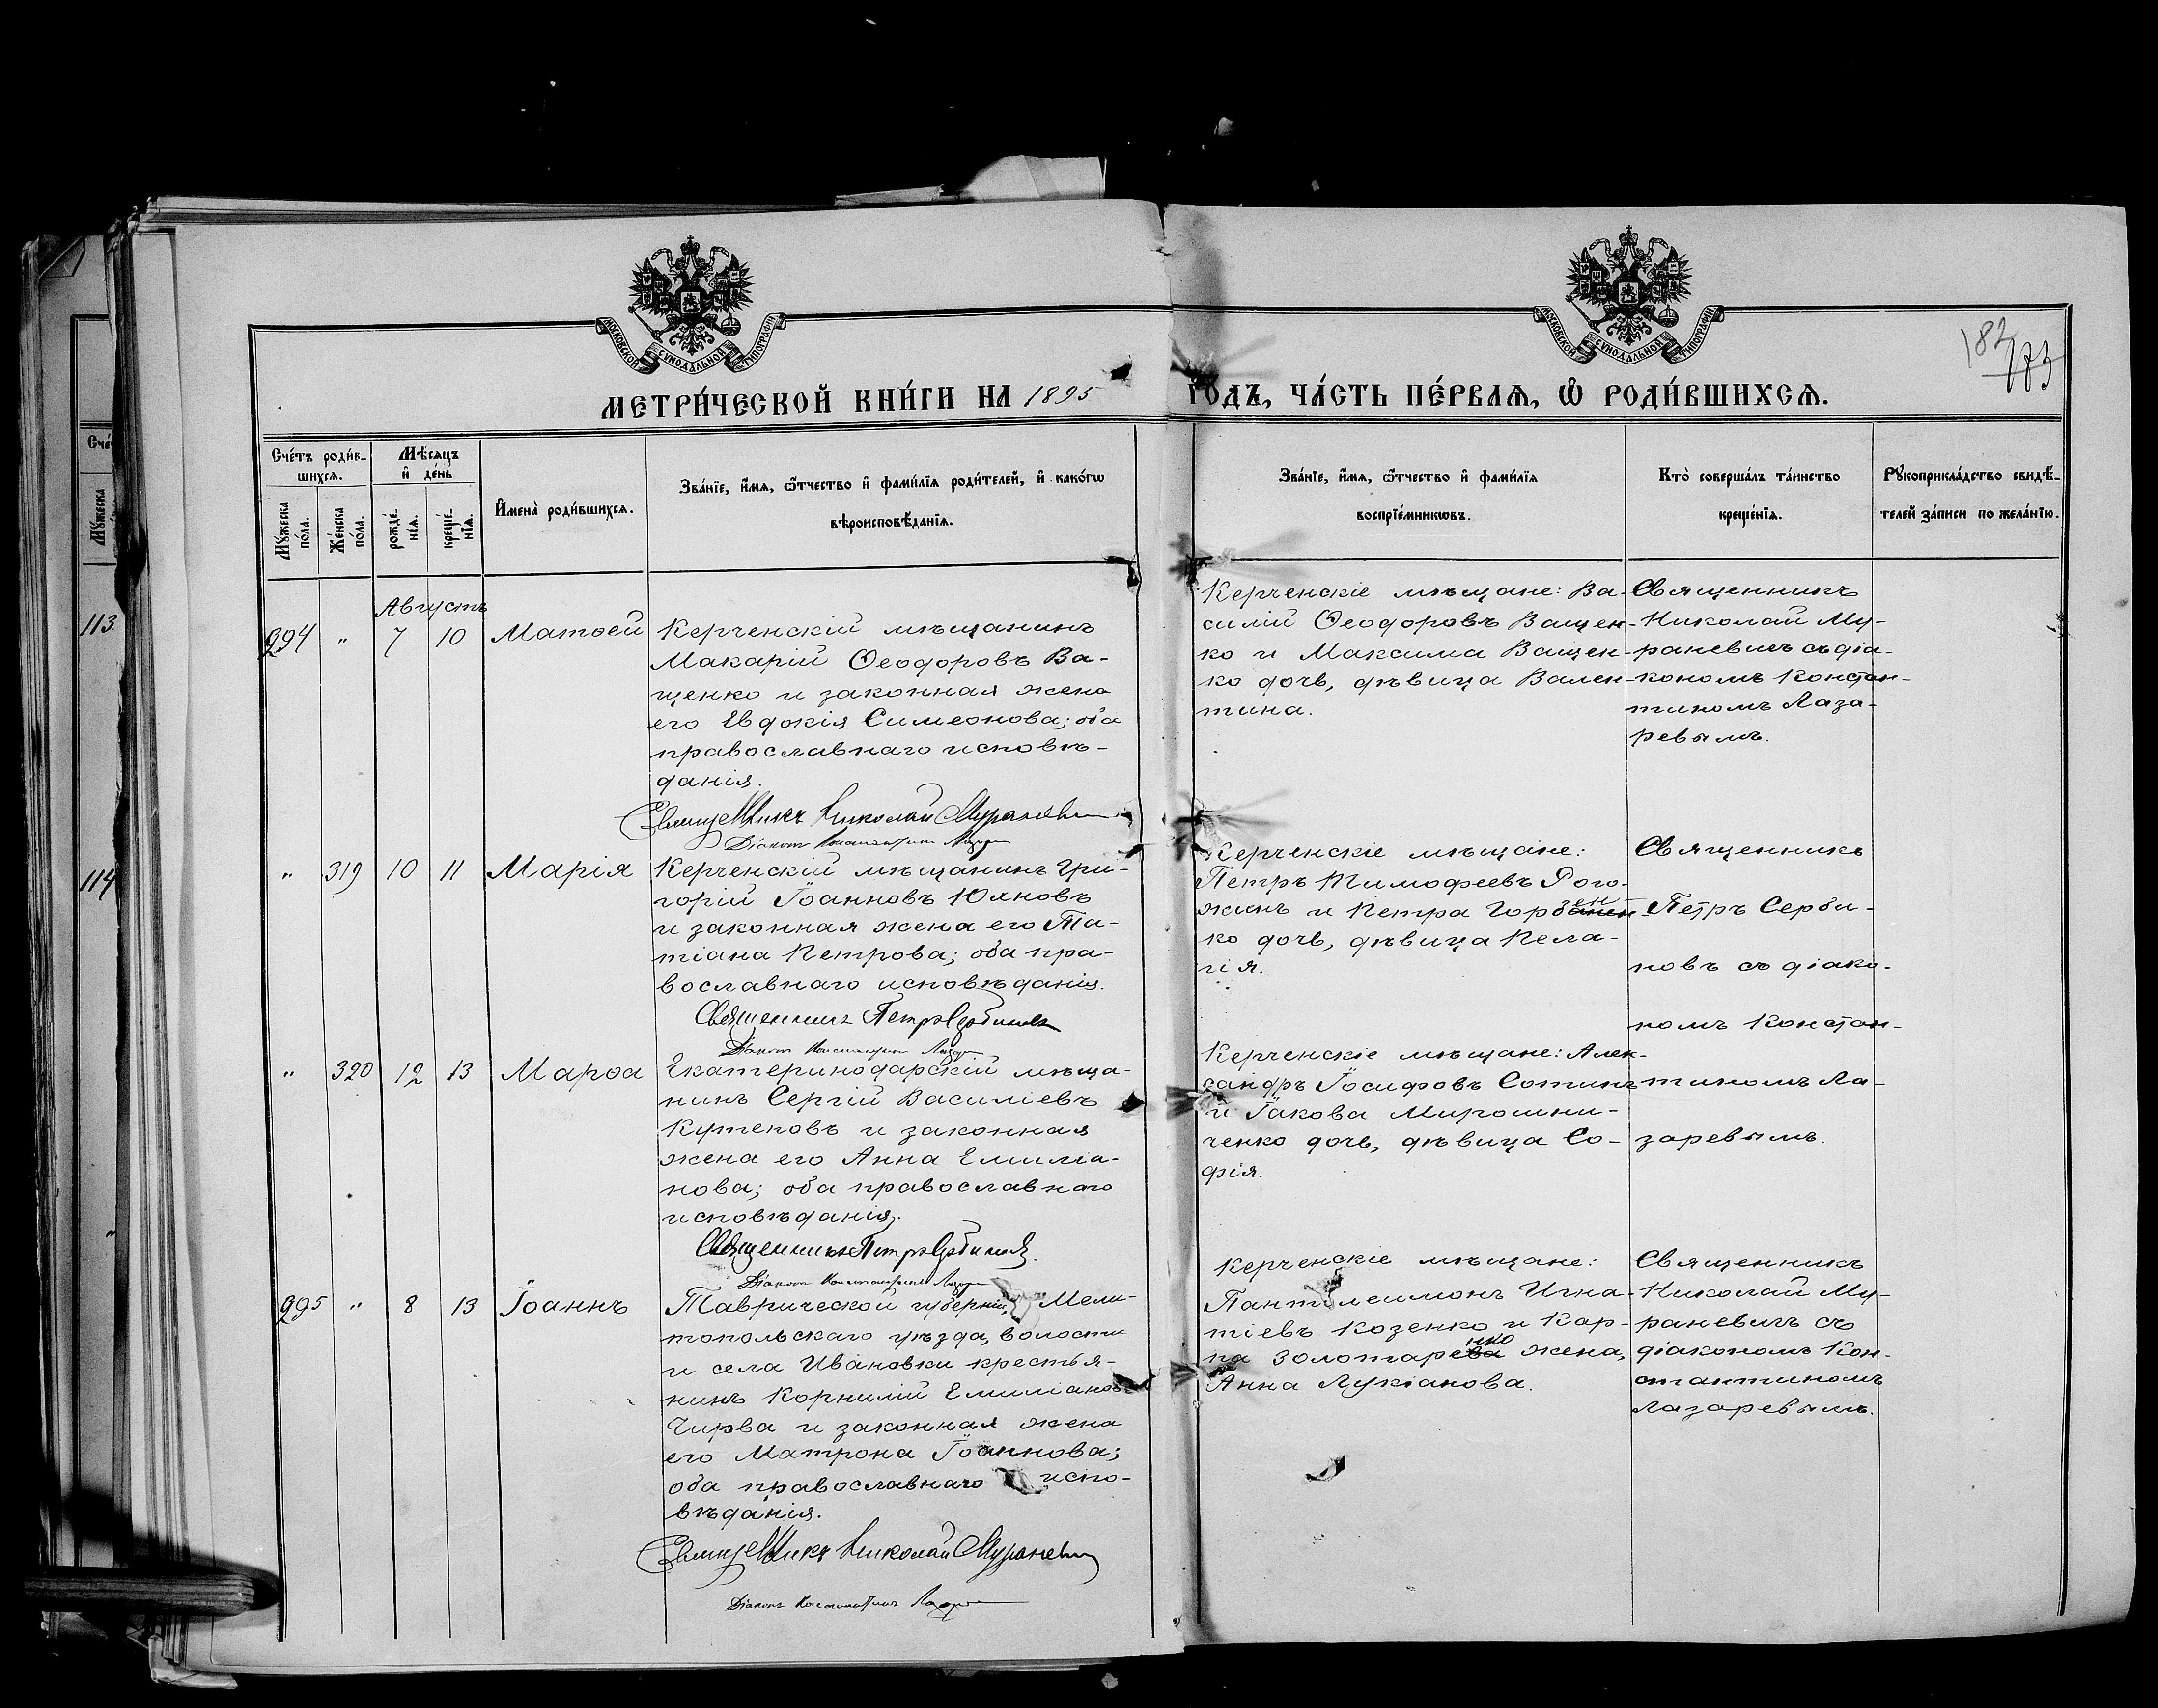 МОСКОВСКОЙ СѴНОДАЛЬНОЙ ТИПОГРАФІИ
МОСКОВСКОЙ СѴНОДАЛЬНОЙ ТИПОГРАФІИ
182
183
МЕТРИ́ЧЕСКОЙ КНИ́ГИ НА 1895 ГОДЪ, ЧА́СТЬ ПЕ́РВАѦ, Ѽ РОДИ́ВШИХСѦ.
Сче́
Мꙋ́жеска
113
114
"
Сче́тъ роди́в-
шихсѧ.
Мꙋ́жеска
по́ла.
Же́нска
по́ла.
Мѣ́сѧцъ
и҆ де́нь
рожде́-
нїѧ.
креще́-
нїѧ.
И҆мена̀ роди́вшихсѧ.
Зва́нїе, и҆́мѧ, ѻ҆́тчество и҆ фами́лїѧ роди́телей, и҆ како́гѡ
вѣроисповѣ́данїѧ.
Зва́нїе, и҆́мѧ, ѻ҆́тчество и҆ фами́лїѧ
воспрїе́мникѡвъ.
Кто̀ соверша́лъ та́инство
креще́нїѧ.
Рꙋкоприкла́дство свидѣ́-
телей за́писи по жела́нїю.
Августъ
294 " 7 10 Матѳей
Керченскій мѣщанинъ
Макарій Ѳеодоровъ Ва-
щенко и законная жена
его Евдокія Симеонова; оба
православнаго исповѣ-
данія.
Священникъ Николай Мураневичъ
Діаконъ Константинъ Лазаревъ
Керченскіе мѣщане: Ва-
силій Ѳеодоровъ Ващен-
ко и Максима Ващен-
ко дочь, дѣвица Вален-
тина.
Священникъ
Николай Му-
раневичъ съ діа-
кономъ Констан-
тиномъ Лаза-
ревымъ.
" 319 10 11 Марія
Керченскій мѣщанинъ Гри-
горій Іоанновъ Юлновъ
и законная жена его Та-
тіана Петрова; оба пра-
вославнаго исповѣданія.
Священникъ Петръ Сербиновъ
Діаконъ Константинъ Лазаревъ
Керченскіе мѣщане:
Петръ Тимофеевъ Рого-
жинъ и Петра Горбанен-
ко дочь, дѣвица Пела-
гія.
Священникъ
Петръ Серби-
новъ съ діако-
номъ Констан-
тиномъ Ла-
заревымъ.
" 320 12 13 Марѳа
Екатеринодарскій мѣща-
нинъ Сергій Василіевъ
Кутеповъ и законная
жена его Анна Емиліа-
нова; оба православнаго
исповѣданія.
Священникъ Петръ Сербиновъ.
Діаконъ Константинъ Лазаревъ
Керченскіе мѣщане: Алек-
сандръ Іосифовъ Сотинъ
и Іакова Мирошни-
ченко дочь, дѣвица Со-
фія.
295 " 8 13 Іоаннъ
Таврической губерніи, Мели-
топольскаго уѣзда, волости
и села Ивановки крестья-
нинъ Корнилій Емиліановъ
Чирва и законная жена
его Матрона Іоаннова;
оба православнаго испо-
вѣданія.
Священникъ Николай Мураневичъ
Діаконъ Константинъ Лазаревъ
Керченскіе мѣщане:
Пантелеимонъ Игна-
тіевъ Козенко и Кар-
па Золотаренко жена,
Анна Лукіанова.
Священникъ
Николай Му-
раневичъ съ
діакономъ Кон-
стантиномъ
Лазаревымъ.